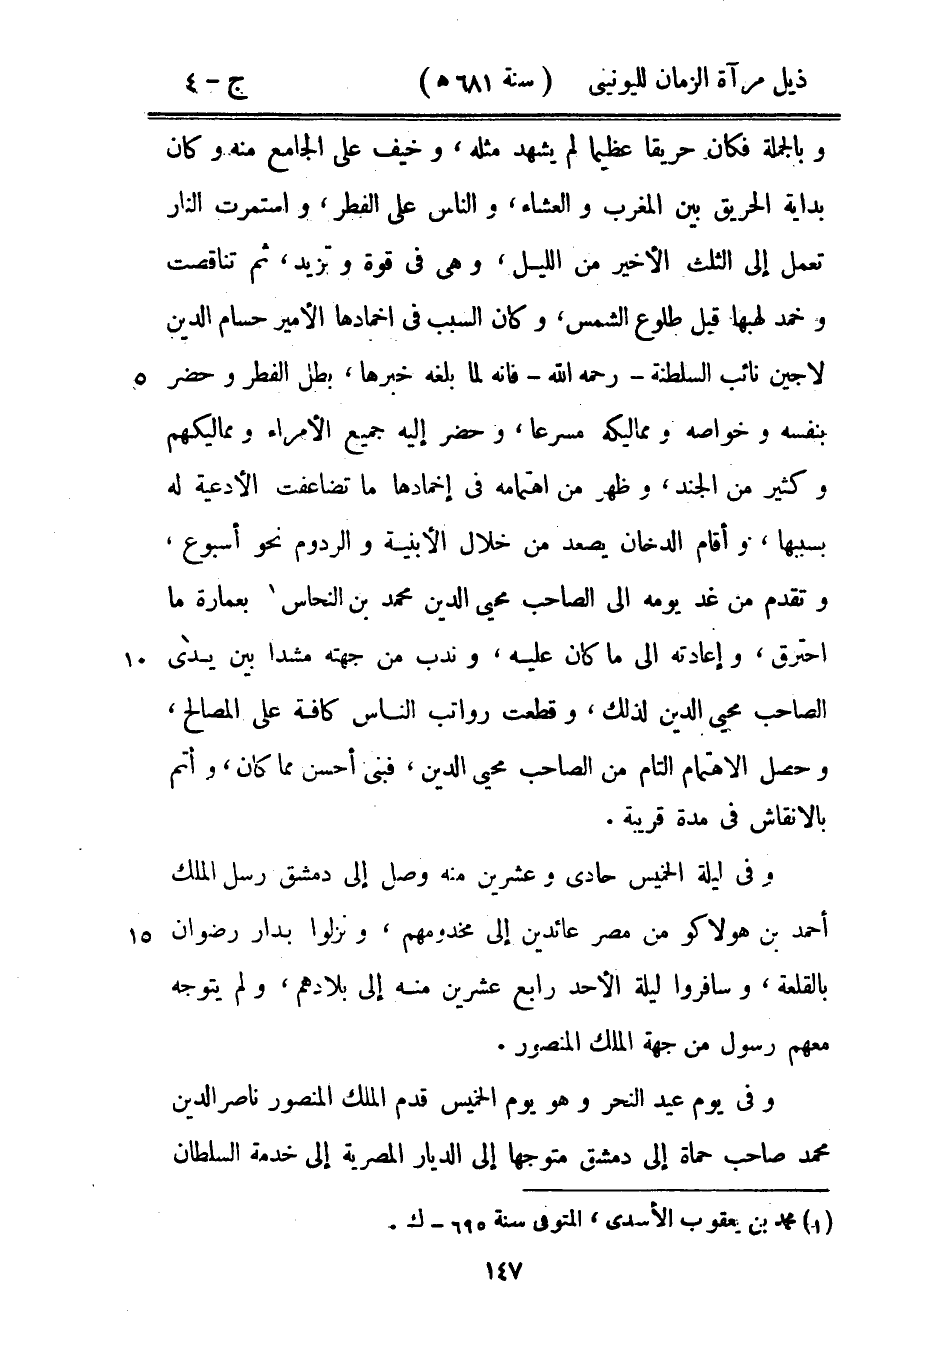 ذيل مرآة الزمان لليونينى ( سنة ٦٨١ ھ ) ج - ٤
و بالجملة فكان حريقا عظيما لم يشهد مثله ، و خيف على الجامع منه و كان
بداية الحريق بين المغرب و العشاء ، و الناس على الفطر ، و استمرت النار
تعمل إلى الثلث الأخير من الليل ، و هى فى قوة و تزيد ، ثم تناقصت
و خمد لهبها قبل طلوع الشمس ، و كان السبب فى اخمادها الأمير حسام الدين
لاجين نائب السلطنة - رحمه الله - فانه لما بلغه خبرها ، بطل الفطر و حضر ٥
بنفسه و خواصه و مماليكه مسرعا ، و حضر إليه جميع الأمراء و مماليكهم
و كثير من الجند ، و ظهر من اهتمامه فى إخمادها ما تضاعفت الأدعية له
بسببها ، و أقام الدخان يصعد من خلال الأبنية و الردوم نحو أسبوع ،
و تقدم من غد يومه الى الصاحب محيى الدين محمد بن النحاس ١ بعمارة ما
احترق ، و إعادته الى ما كان عليه ، و ندب من جهته مشدا بين يدى ١٠
الصاحب محيى الدين لذلك ، و قطعت رواتب الناس كافة على المصالح ،
و حصل الاهتمام التام من الصاحب محيى الدين ، فبنى أحسن مما كان ، و أتم
بالانقاش فى مدة قريبة .
و فى ليلة الخميس حادى و عشرين منه وصل إلى دمشق رسل الملك
أحمد بن هولاكو من مصر عائدين إلى مخدومهم ، و نزلوا بدار رضوان ١٥
بالقلعة ، و سافروا ليلة الأحد رابع عشرين منه إلى بلادهم ، و لم يتوجه
معهم رسول من جهة الملك المنصور .
و فى يوم عيد النحر و هو يوم الخميس قدم الملك المنصور ناصر الدين
محمد صاحب حماة إلى دمشق متوجها إلى الديار المصرية إلى خدمة السلطان
(١) محمد بن يعقوب الأسدى ، المتوفى سنة ٦٩٥ - ك .
١٤٧